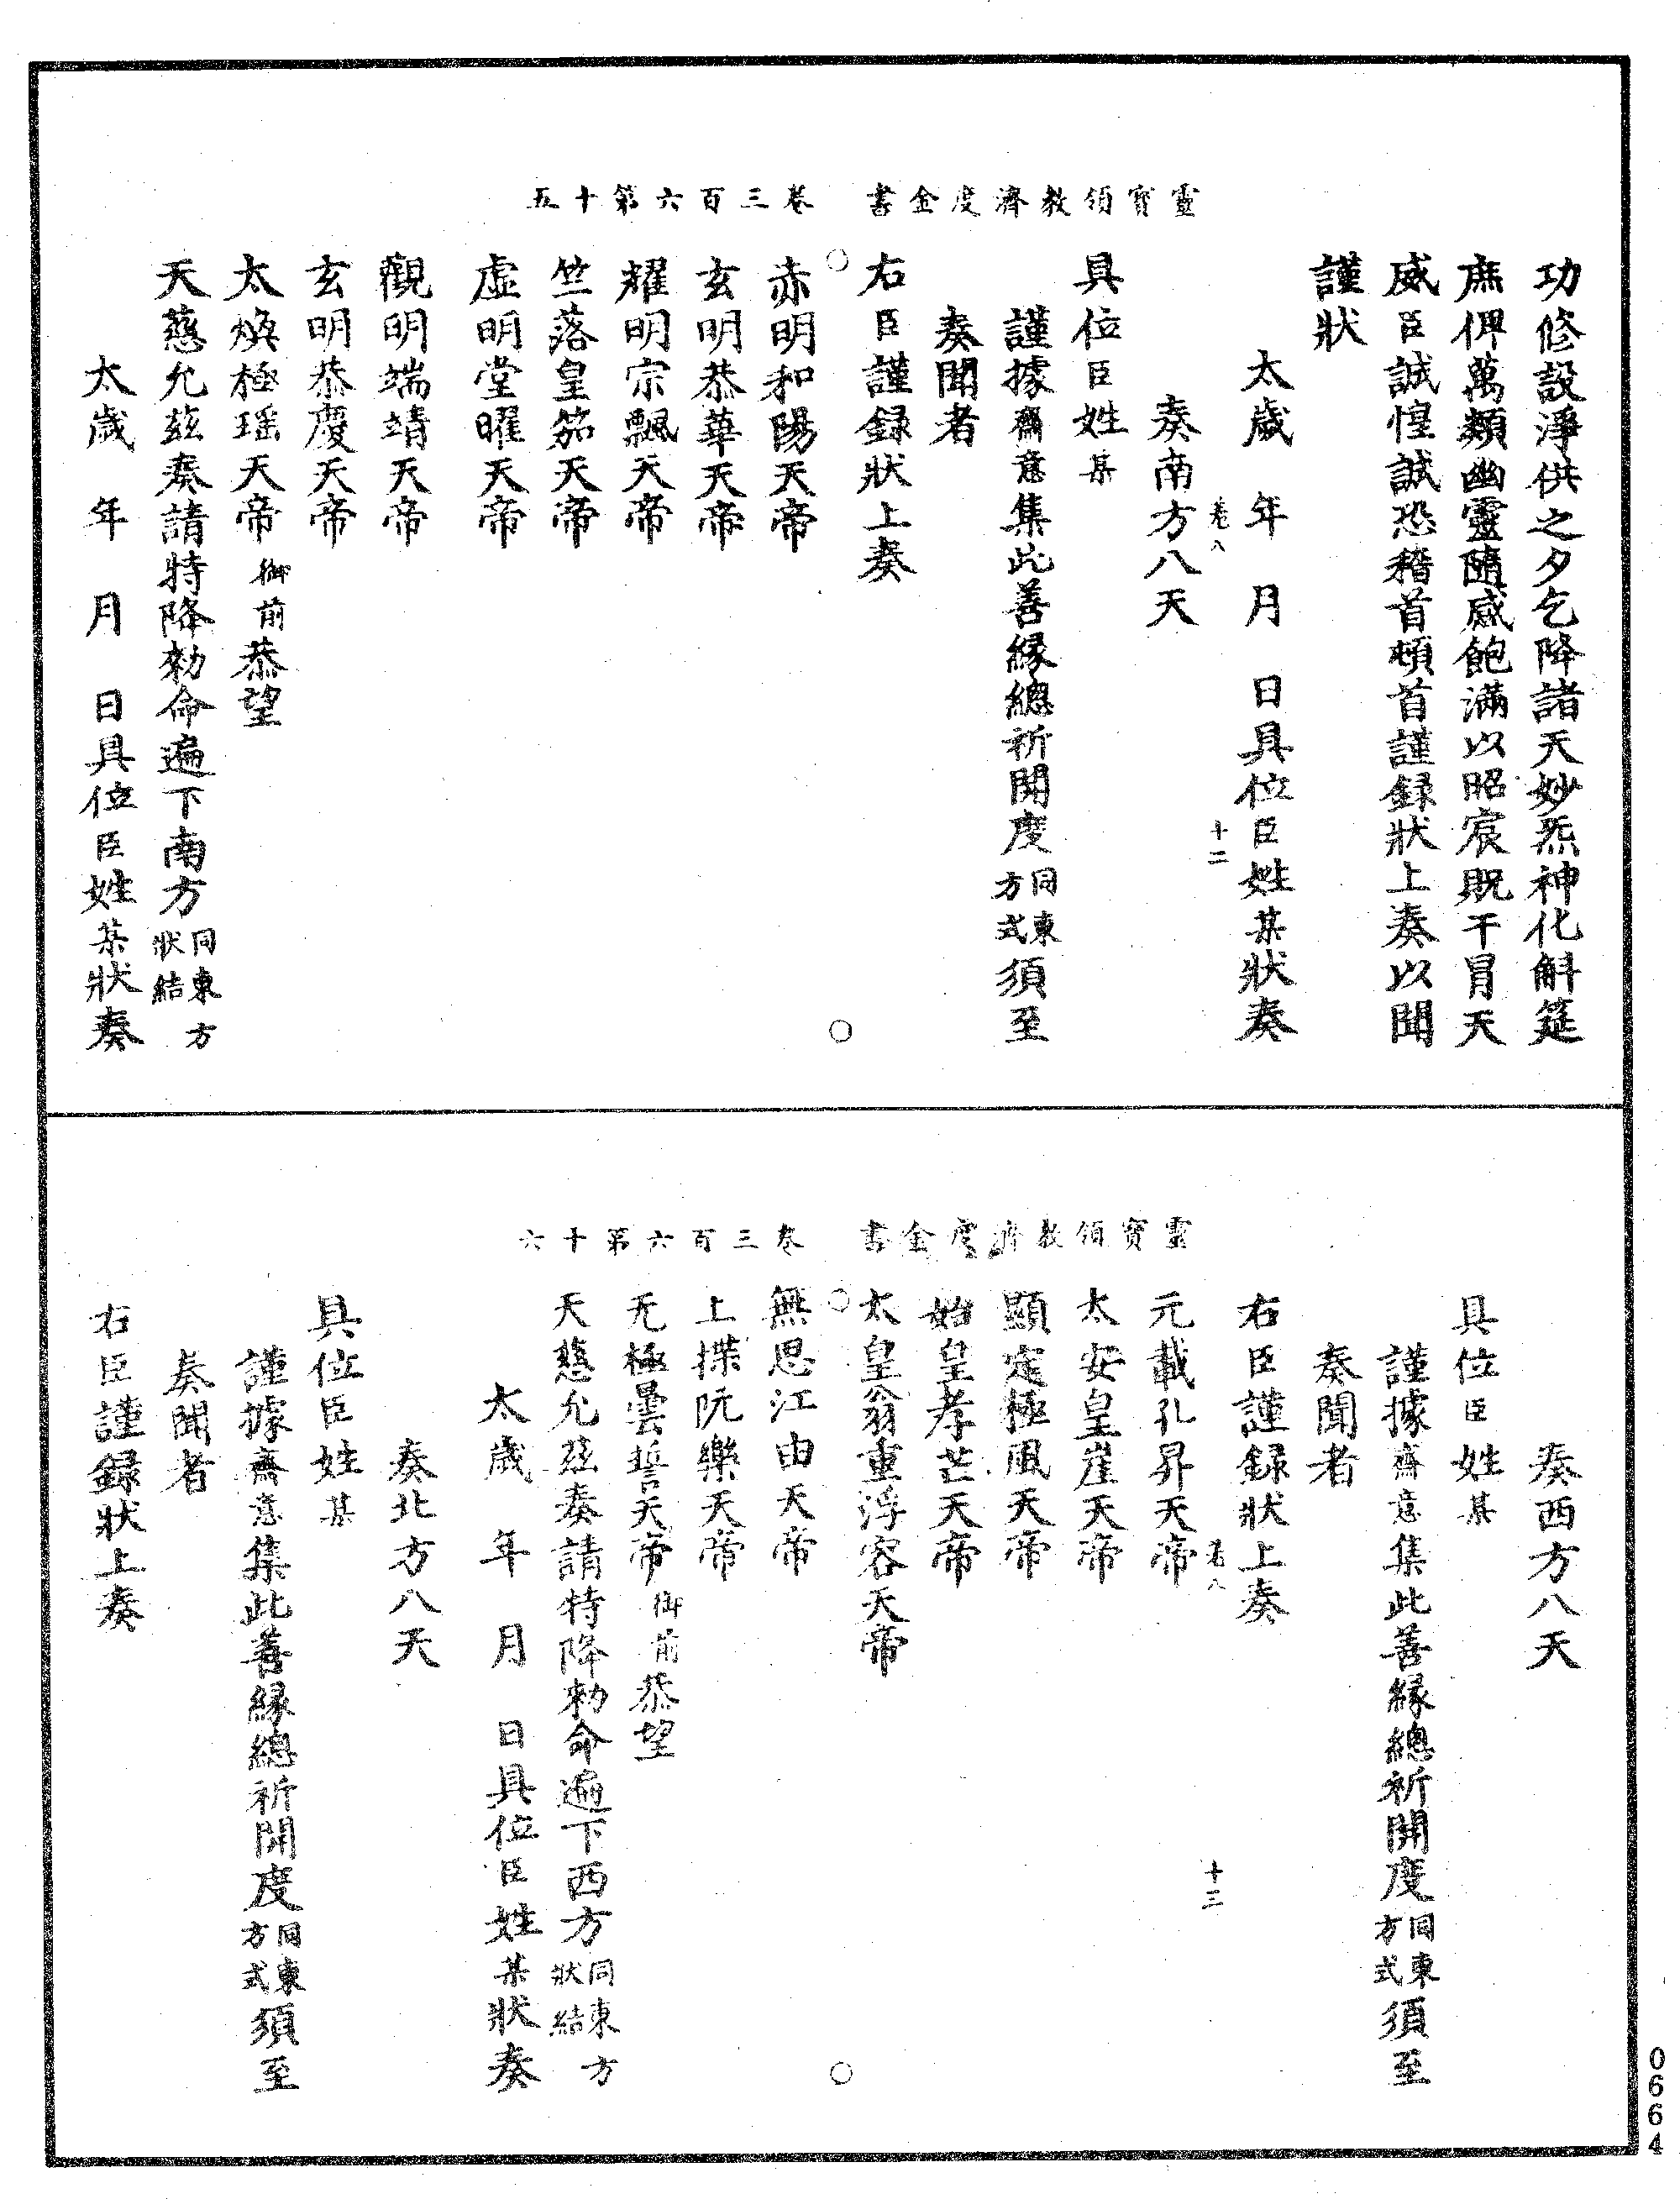 靈寶領教濟度金書　卷三百六第十五
功修設淨供之夕乞降諸天妙炁神化斛筵
庶俾萬類幽靈隨感飽滿以昭宸貺干冒天
威臣誠惶誠恐稽首頓首謹録狀上奏以聞
謹狀
太歲　年　月　日具位臣姓某狀奏
卷八　十二
奏南方八天
具位臣姓某
謹據齋意集此善緣總祈開度同東方式須至
奏聞者
右臣謹録狀上奏
赤明和陽天帝
玄明恭華天帝
耀明宗飄天帝
竺落皇笳天帝
虛明堂曜天帝
觀明端靖天帝
玄明恭慶天帝
太煥極瑶天帝御前恭望
天慈允茲奏請特降勑命遍下南方同東方狀結
太歲　年　月　日具位臣姓某狀奏
靈寶領教濟度金書　卷三百六第十六
奏西方八天
具位臣姓某
謹據齋意集此善緣總祈開度同東方式須至
奏聞者
右臣謹録狀上奏
卷八　十三
元載孔昇天帝
太安皇崖天帝
顯定極風天帝
始皇孝芒天帝
太皇翁重浮容天帝
無思江由天帝
上揲阮樂天帝
无極曇誓天帝御前恭望
天慈允茲奏請特降勑命遍下西方同東方狀結
太歲　年　月　日具位臣姓某狀奏
奏北方八天
具位臣姓某
謹據齋意集此善緣總祈開度同東方式須至
奏聞者
右臣謹録狀上奏
0664